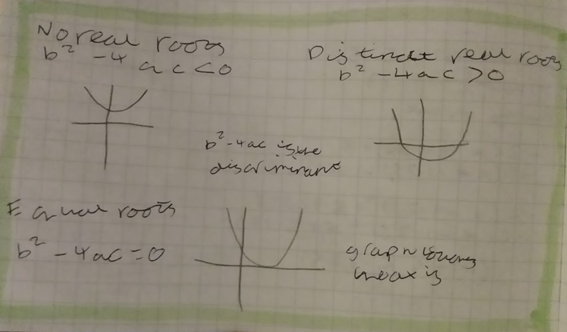 No real roots
b² - 4ac < 0
Distinct real roots
b² - 4ac > 0
b²-4ac is the
discriminant
Equal roots
b² - 4ac = 0
graph
the axis